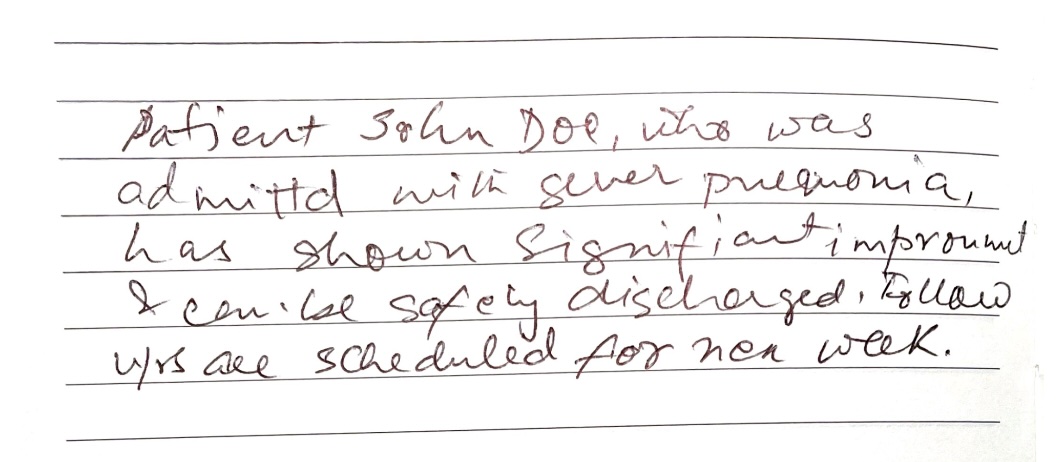 Patient John Doe, who was
admittd with sever pnuemonia,
has shown Signifiant improvmnt
& can be safely discharged. Follow
ups are scheduled for nex week.